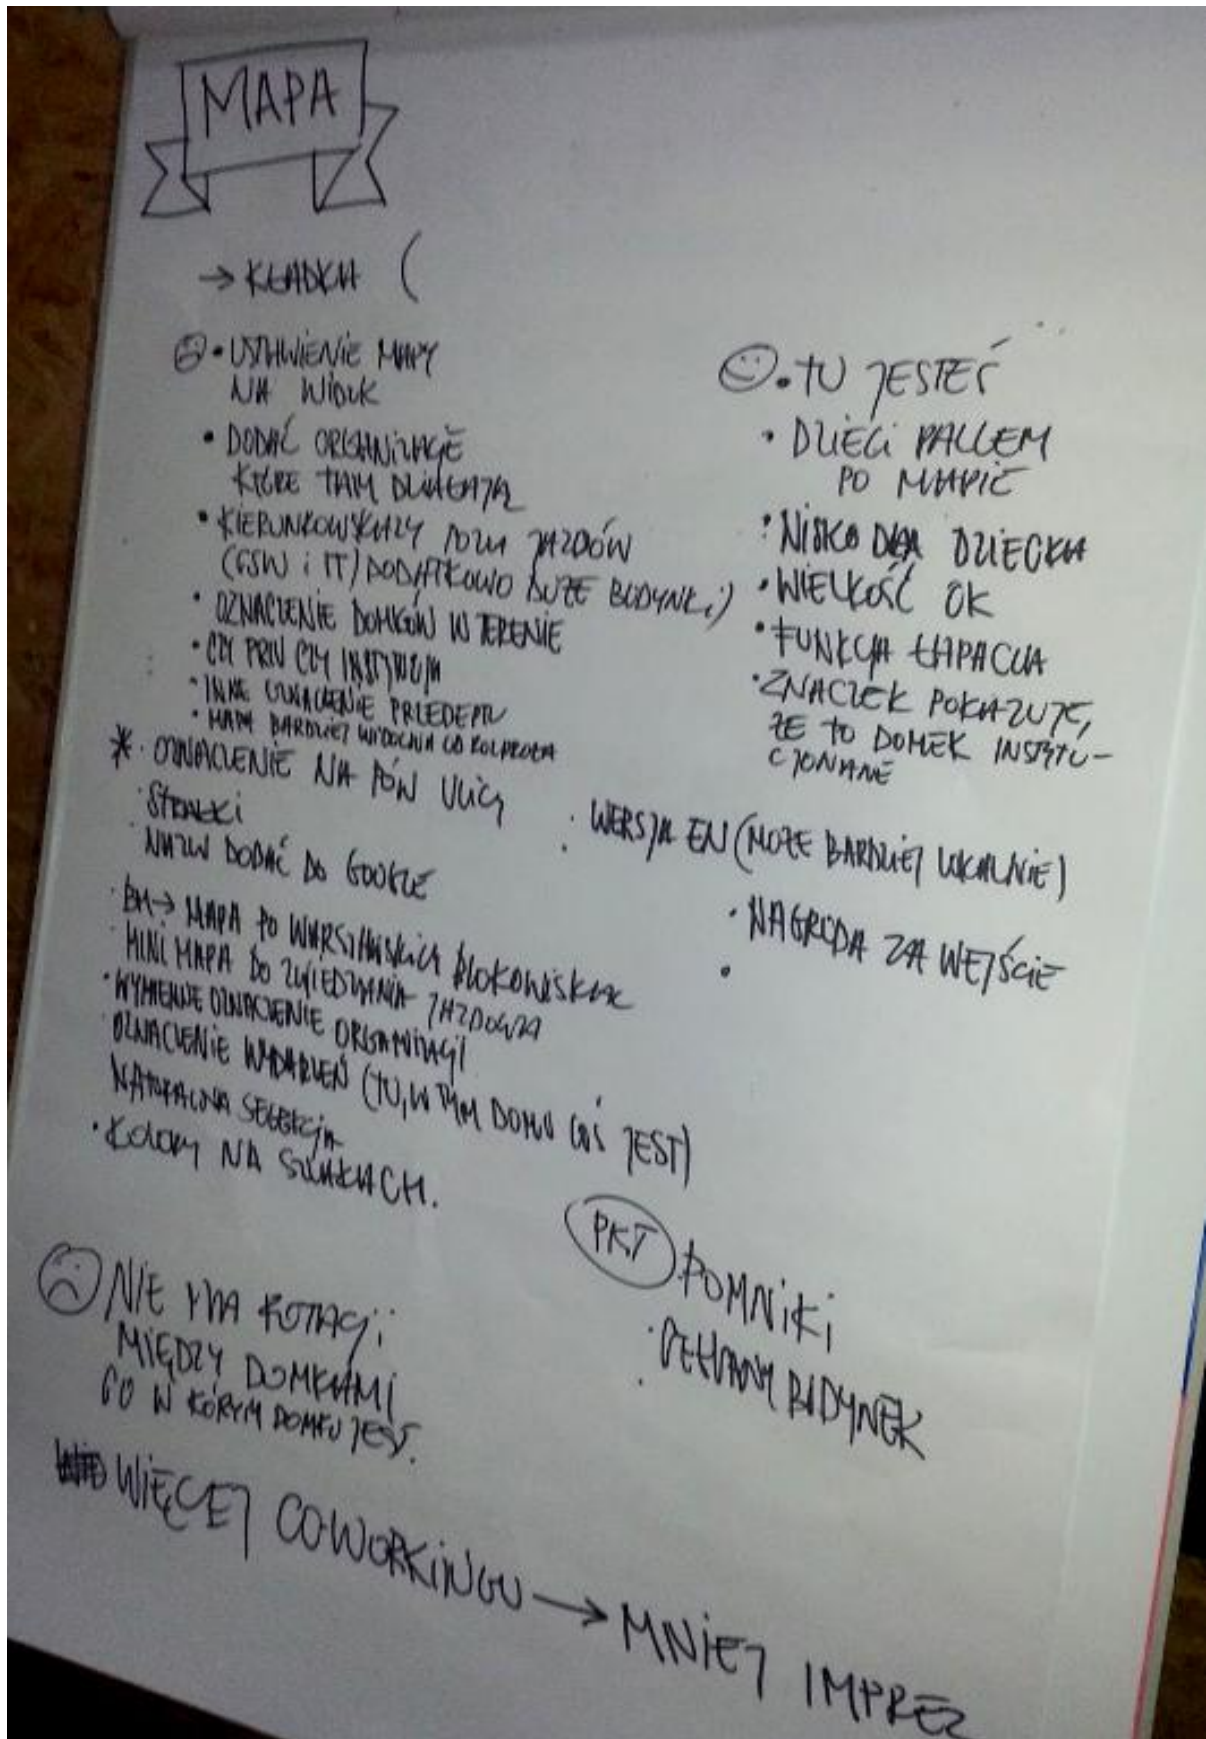 MAPA
→ KŁADKA (
• USTAWIENIE MAPY
NA WIDOK
• DODAĆ ORGANIZACJE
KTÓRE TAM DZIAŁAJĄ
• KIERUNKOWSKAZY POZA JAZDÓW
(CSW i IT) DODATKOWO DUŻE BUDYNKI)
• OZNACZENIE DOMKÓW W TERENIE
• CZY PRIV CZY INSTYTUCJA
• INNE OZNACZENIE
• MAPA BARDZIEJ WIDOCZNA OD
* • OZNACZENIE NA PÓW ULICY
• STRZAŁKI
NAZW DODAĆ DO GOOGLE
• BM → MAPA PO WARSZAWSKICH BLOKOWISKACH
• MINI MAPA DO ZWIEDZANIA JAZDOWA
• WYMIENNE OZNACZENIE ORGANIZACJI
OZNACZENIE WYDARZEŃ (TU, W TYM DOMU COŚ JEST)
NATURALNA SELEKCJA
• KOLORY NA SZLAKACH.
• TU JESTEŚ
• DZIECI PALCEM
PO MAPIE
• NISKO DLA DZIECKA
• WIELKOŚĆ OK
• FUNKCJA ŁAPACZA
• ZNACZEK POKAZUJE,
ŻE TO DOMEK INSTYTU-
CJONANE
• WERSJA EN (MOŻE BARDZIEJ LOKALNIE)
• NAGRODA ZA WEJŚCIE
PKT POMNIKI
• BUDYNEK
NIE MA ROTACJI
MIĘDZY DOMKAMI
CO W KÓRYM DOMKU JEST.
WIĘCEJ COWORKINGU → MNIEJ IMPREZ